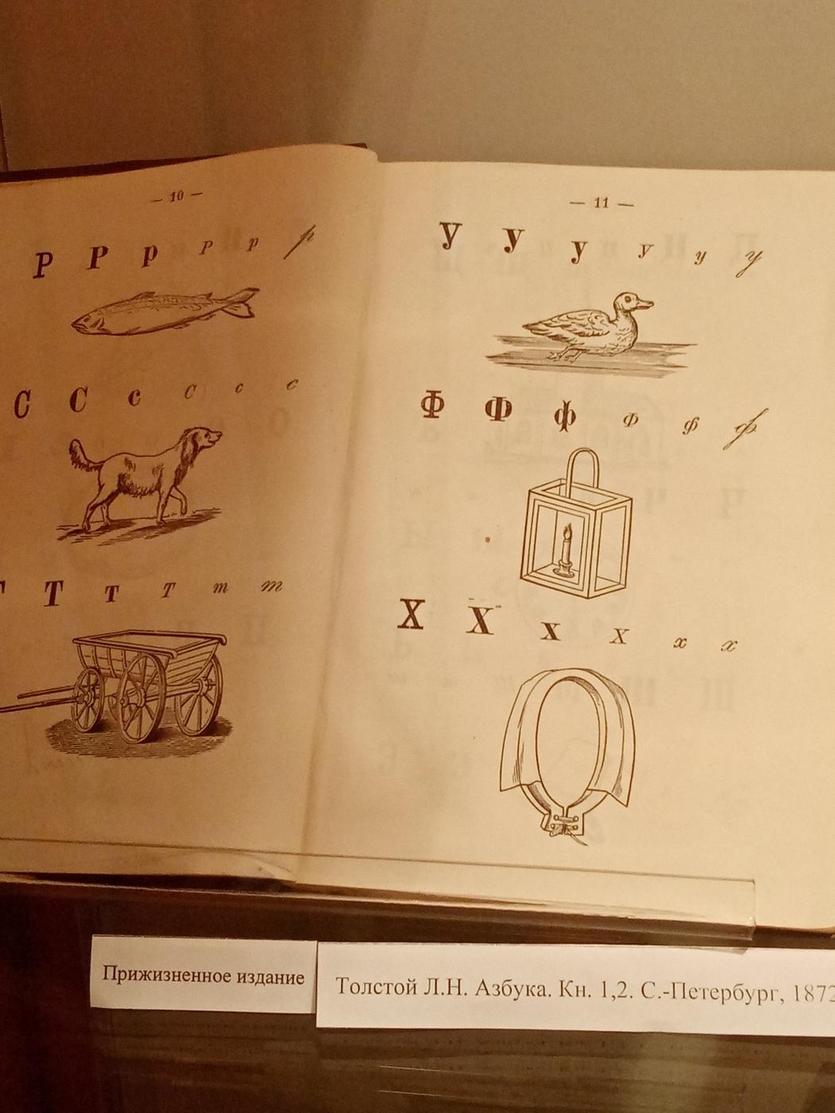 — 10 —
Р Р р Р р р
С С с С с с
Т т Т т т
— 11 —
У У у У у у
Ф Ф ф Ф ф ф
Х Х х Х х х
Прижизненное издание
Толстой Л.Н. Азбука. Кн. 1,2. С.-Петербург, 1872